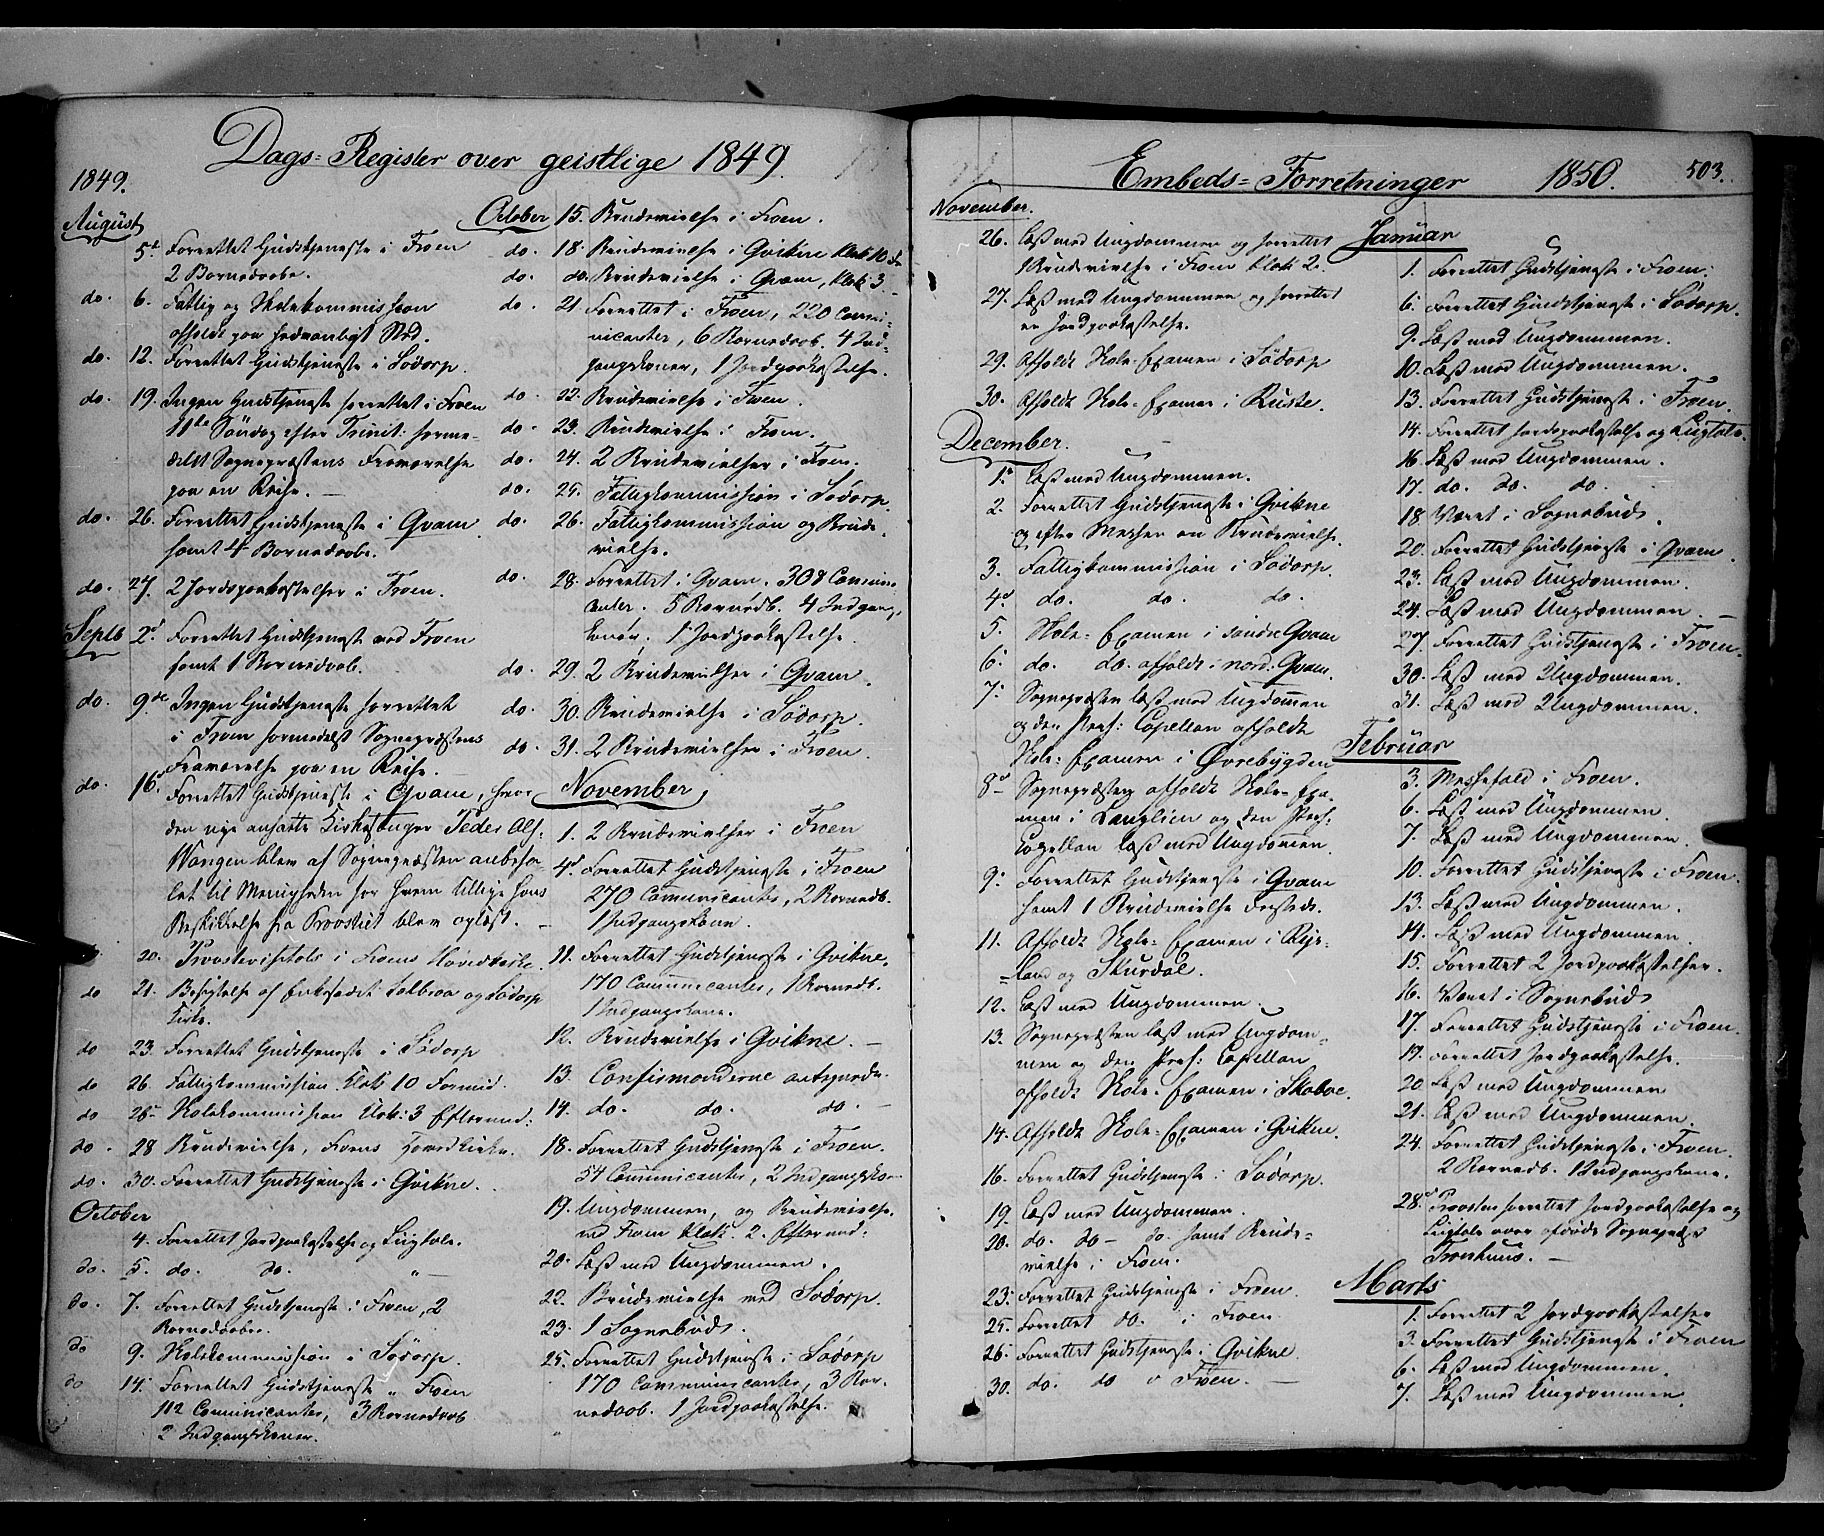 Dags-Register over geistlige 1849.
1849.
August
5te Forrettet Gudstjeneste i Froen
2 Barnedaabe.
do. 6. Fattig og Skolekommission
afholdt paa sædvanligt Sted.
do. 12. Forrettet Gudstjeneste i Södorp.
do. 19. Ingen Gudstjeneste forrettet i Froen
11te Söndag efter Trinit: forme-
delst Sognepræstens Fraværelse
paa en Reise. —
do. 26. Forrettet Gudstjeneste i Qvam
samt 4 Barnedaabe.
do. 27. 2 Jordspaakastelser i Froen.
Septb 2d Forrettet Gudstjeneste ved Froen
samt 1 Barnedaab.
do. 9de Ingen Gudstjeneste forrettet
i Froen formedelst Sognepræstens
Fraværelse paa en Reise. —
do. 16. Forrettet Gudstjeneste i Qvam, hvor
den nye ansatte Kirkesanger Peder Ols:
Wangen blev af Sognepræsten anbefa-
let til Menigheden for hvem tillige hans
Beskikkelse fra Provstiet blev oplæst. —
20. Provstevisitats i Froens Hovedkirke.
do 21. Besigtelse af og Södorp
Kirke.
do 23. Forrettet Gudstjeneste i Södorp
do 26. Fattigkommission Klok 10 Formid.
do 26 Skolekommission Klok: 3 Eftermid:
do. 28 Brudevielse, Froens Hovedkirke.
do. 30. Forrettet Gudstjeneste i Qvikne.
October
4. Forrettet Jordpaakastelse og Liigtale.
do. 5. do. do. " —
do. 7. Forrettet Gudstjeneste i Froen, 2
Barnedaabe.
do 9. Skolekommission i Södorp.
do 14. Forrettet Gudstjeneste " Froen
112 Comunicanter, 3 Barnedaab
2 Indgangskoner.
October 15. Brudevielse i Froen.
do. 18. Brudevielse i Qvikne Klok 10 Fr
do. do. Brudevielse i Qvam, Klok 3 —
do 21. Forrettet i Froen, 220 Commu-
nicanter, 6 Barnedaab. 4 Ind-
gangskoner, 1 Jordpaakastelse.
do. 22. Brudevielse i Froen.
do. 23. Brudevielse i Froen.
do. 24. 2 Brudevielser i Froen.
do. 25. Fattigkommission i Södorp.
do. 26. Fattigkommission og Brude-
vielse.
do. 28. Forrettet i Qvam. 308 Commun-
canter. 5 Barnedb. 4 Indgan,,
koner. 1 Jordpaakastelse.
do. 29. 2 Brudevielser i Qvam.
do. 30. Brudevielse i Södorp.
do. 31. 2 Brudevielser i Froen.
November
1. 2 Brudevielser i Froen
4d Forrettet Gudstjeneste i Froen
270 Communicanter, 2 Barnedb.
1 Indgangskone.
11. Forrettet Gudstjeneste i Qvikne.
170 Communicanter, 1 Barnedb.
1 Indgangskone.
12. Brudevielse i Qvikne. —
13. Confirmanderne antegnede.
14. do. do. do. —
18. Forrettet Gudstjeneste i Froen.
54 Communicanter, 2 Indgangsko-
19. Ungdommen, og Brudevielse
ved Froen Klok. 2. Eftermid:
20. Læst med Ungdommen.
22. Brudevielse ved Södorp.
23. 1 Sognebud.
25. Forrettet Gudstjeneste i Södorp
170 Communicanter, 3 Bar-
nedaab. 1 Jordpaakastelse.
Embeds-Forretninger 1850. 503.
November.
26. Læst med Ungdommen og forrettet
1 Brudevielse i Froen Klok 2.
27. Læst med Ungdommen og forrettet
en Jordpaakastelse.
29. Afholdt Skole-Examen i Södorp
30. Afholdt Skole-Examen i Ruste.
December.
1. Læst med Ungdommen.
2. Forrettet Gudstjeneste i Qvikne
og efter Messen en Brudevielse.
3. Fattigkommission i Södorp.
4d do. do. do.
5. Skole-Examen i søndre Qvam
6. do. do. afholdt i nord: Qvam.
7. Sognepræsten læst med Ungdommen
og den Pers: Capellan afholdt
Skole-Examen i Övrebygden
8d Sognepræsten afholdt Skole-Exa-
men i Langlien og den Pers:
Capellan læst med Ungdomen.
9. Forrettet Gudstjeneste i Qvam
samt 1 Brudevielse sersteds.
11. Afholdt Skole-Examen i
og Skurdal.
12. Læst med Ungdommen.
13. Sognepræsten læst med Ungdom-
men og den Pers: Capellan
afholdt Skole-Examen i Skaboe.
14. Afholdt Skole-Examen i Qvikne.
16. Forrettet Gudstjeneste i Södorp.
19. Læst med Ungdommen.
20. do. do — do. samt Brude-
vielse i Froen.
23. Forrettet Gudstjeneste i Froen.
25. Forrettet do. i Froen.
26. Forrettet Gudstjeneste i Qvikne.
30. do. do " Froen. —
Januar
1. Forrettet Gudstjeneste i Froen.
6. Forrettet Gudstjeneste i Södorp.
9. Læst med Ungdommen.
10. Læst med Ungdommen.
13. Forrettet Gudstjeneste i Froen.
14. Forrettet Jordpaakastelse og Liigtale.
16. Læst med Ungdommen.
17. do. do. do.
18 Været i Sognebud.
20. Forrettet Gudstjeneste i Qvam
23. Læst med Ungdommen.
24. Læst med Ungdommen —
27. Forrettet Gudstjeneste i Froen.
30. Læst med Ungdommen.
31. Læst med Ungdommen.
Februar
3. Messefald i Froen.
6. Læst med Ungdommen.
7. Læst med Ungdommen.
10. Forrettet Gudstjeneste i Froen.
13. Læst med Ungdommen.
14. Læst med Ungdommen.
15. Forrettet 2 Jordpaakastelser.
16. Været i Sognebud
17. Forrettet Gudstjeneste i Froen.
19. Forrettet Jordpaakastelse.
20 Læst med Ungdommen
21. Læst med Ungdommen.
24. Forrettet Gudstjeneste i Froen.
2 Barnedb. 1 Indgangskone.
28d Provsten forrettet Jordpaakastelse og
Liigtale over afdøde Sognepræst
—
Marts
1. Forrettet 2 Jordpaakastelser
3. Forrettet Gudstjeneste i Froen
6. Læst med Ungdommen.
7. Læst med Ungdommen.